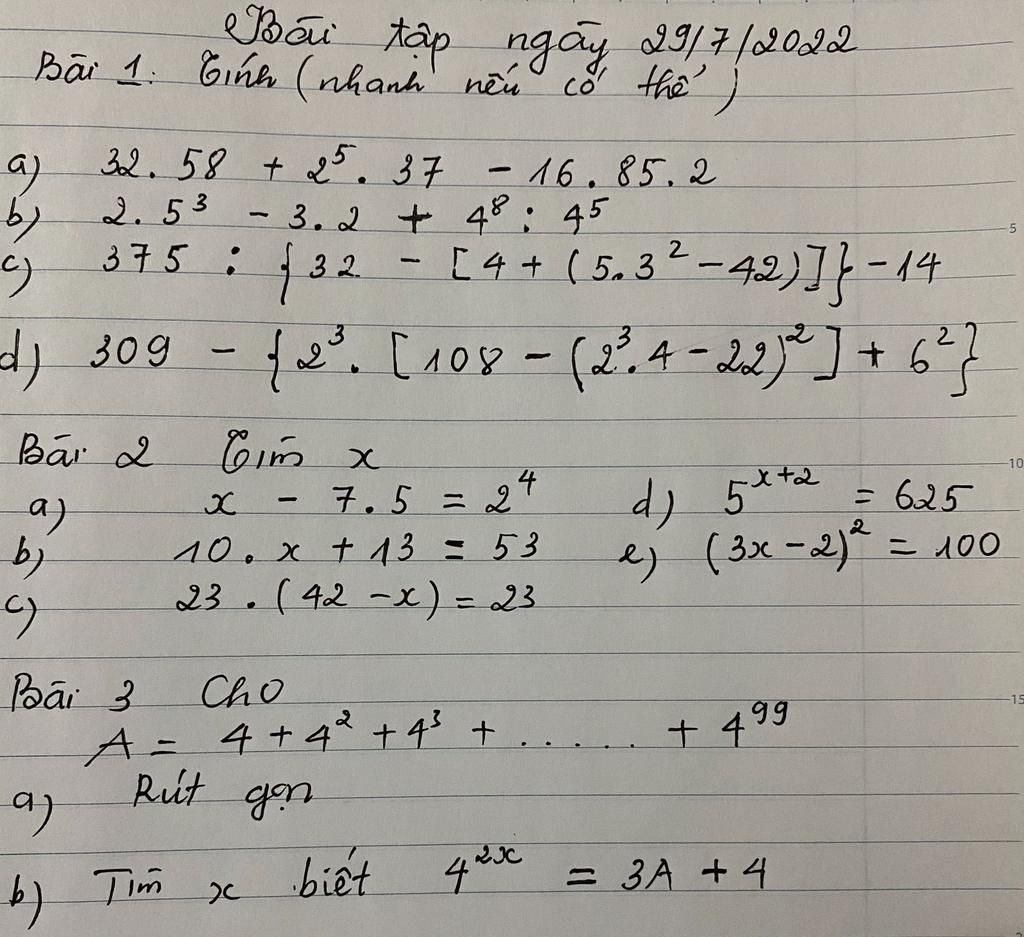 Bài tập ngày 29/7/2022
Bài 1: Tính (nhanh nếu có thể)
a) 32.58 + 2⁵.37 - 16.85.2
b) 2.5³ - 3.2 + 4⁸ : 4⁵
c) 375 : {32 - [4 + (5.3² - 42)]} - 14
d) 309 - {2³.[108 - (2³.4 - 22)²] + 6²}
Bài 2 Tìm x
a) x - 7.5 = 2⁴ d) 5ˣ⁺² = 625
b) 10.x + 13 = 53 e) (3x - 2)² = 100
c) 23.(42 - x) = 23
Bài 3 Cho
A = 4 + 4² + 4³ + ...... + 4⁹⁹
a) Rút gọn
b) Tìm x biết 4²ˣ = 3A + 4
5
10
15